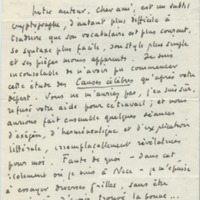 notre auteur, cher ami, est un subtil
cryptographe, d'autant plus difficile à
que son vocabulaire est plus courant,
sa syntaxe plus facile, son style plus simple
et ses pièges moins apparents. Je suis
inconsolable de n'avoir pu commencer
cette étude des Causes célèbres qu'après votre
départ. Vous ne m'auriez pas, j'en suis sûr,
refusé votre aide pour ce travail ; et nous
aurions fait ensemble quelques séances
d'exégèse, d'herméneutique et d'explication
littérale, irremplaçablement révélatrices
pour moi. Faute de quoi – dans cet
isolement où je suis à Nice – je m'épuise
à essayer diverses grilles, sans être
trouvé la bonne...